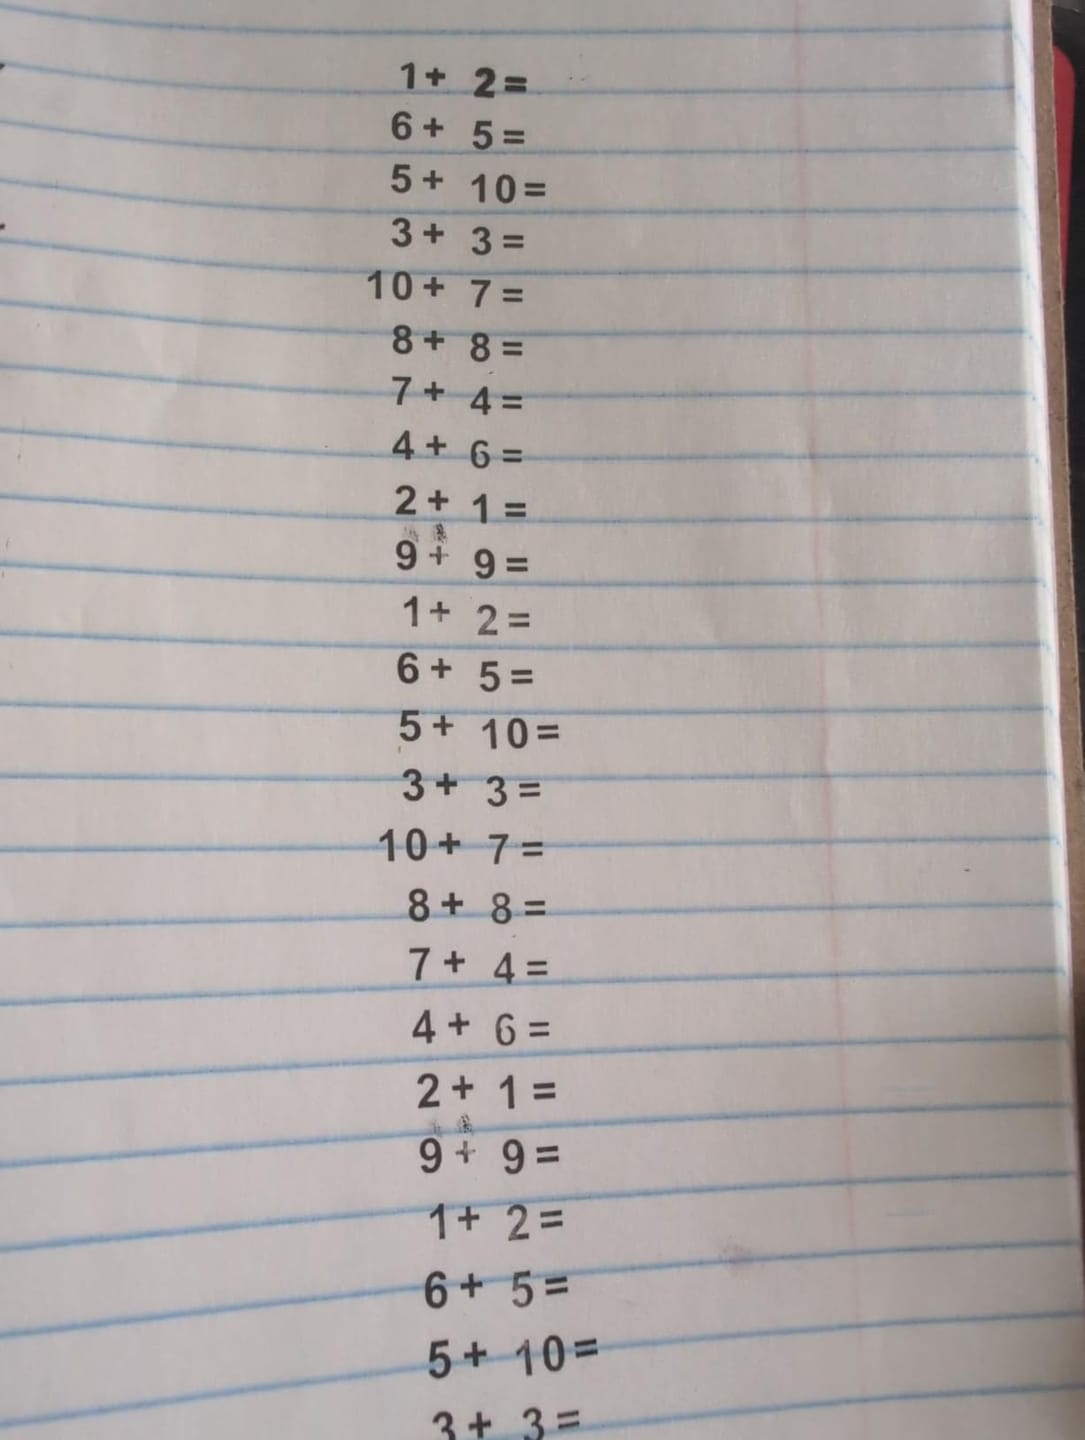 1+ 2=
6+ 5=
5+ 10=
3+ 3=
10+ 7=
8+ 8=
7+ 4=
4+ 6=
2+ 1=
9+ 9=
1+ 2=
6+ 5=
5+ 10=
3+ 3=
10+ 7=
8+ 8=
7+ 4=
4+ 6=
2+ 1=
9+ 9=
1+ 2=
6+ 5=
5+ 10=
3+ 3=